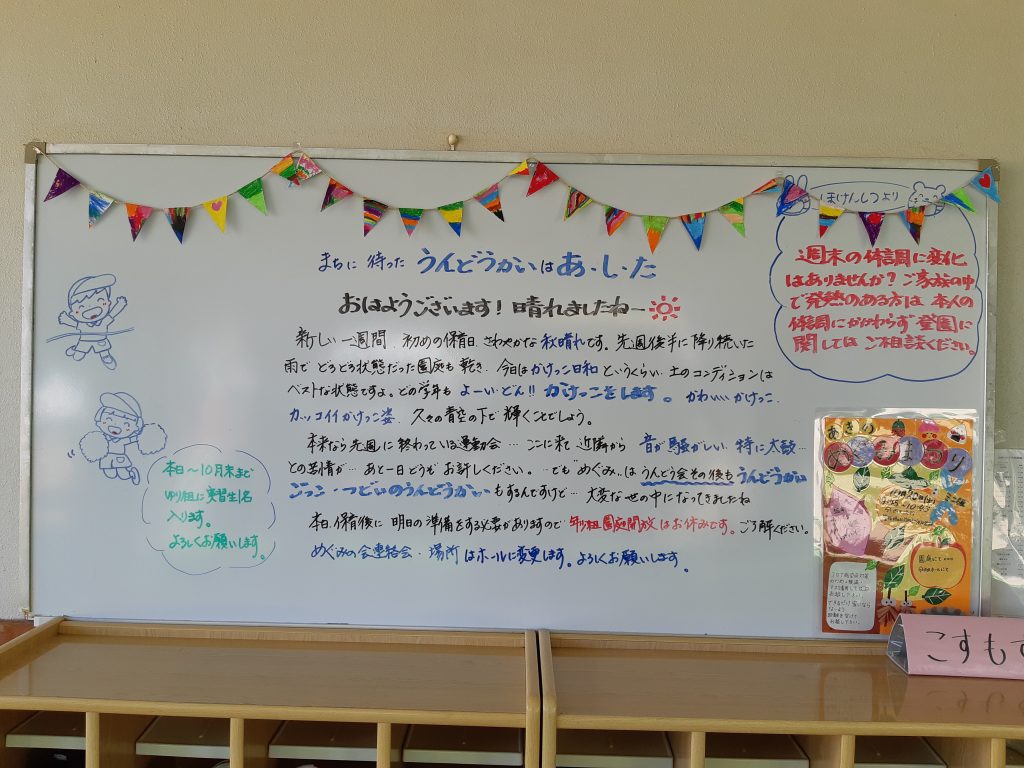 まちに 待った うんどうかいは あ・し・た
おはようございます！晴れましたねー
新しい一週間、初めの保育日、さわやかな秋晴れです。先週後半に降り続いた
雨で どろどろ状態だった園庭も乾き、今日はかけっこ日和というくらい、土のコンディションは
ベストな状態ですよ。どの学年も よーい・どん!! かけっこをします。かわいいかけっこ、
カッコイイかけっこ姿、久々の青空の下で輝くことでしょう。
本来なら先週に終わっている運動会… ここに来て近隣から 音が騒がしい、特に太鼓…
との苦情が… あと一日どうぞお許しください。…でも"めぐみ"は うんどう会その後も うんどうかい
ごっこ・つどいのうんどうかいもするんですけど… 大変な世の中になってきましたね
本日、保育後に 明日の準備をする必要がありますので 年少組園庭開放はお休みです。ご了解ください。
めぐみの会連絡会・場所はホールに変更します。よろしくお願いします。
本日〜10月末まで
ゆり組に実習生1名
入ります。
よろしくお願いします。
ほけんしつより
週末の体調に変化
はありませんか？ご家族の中
で発熱のある方は 本人の
体調にかかわらず 登園に
関しては ご相談ください。
あきの
園庭にて
こすもす